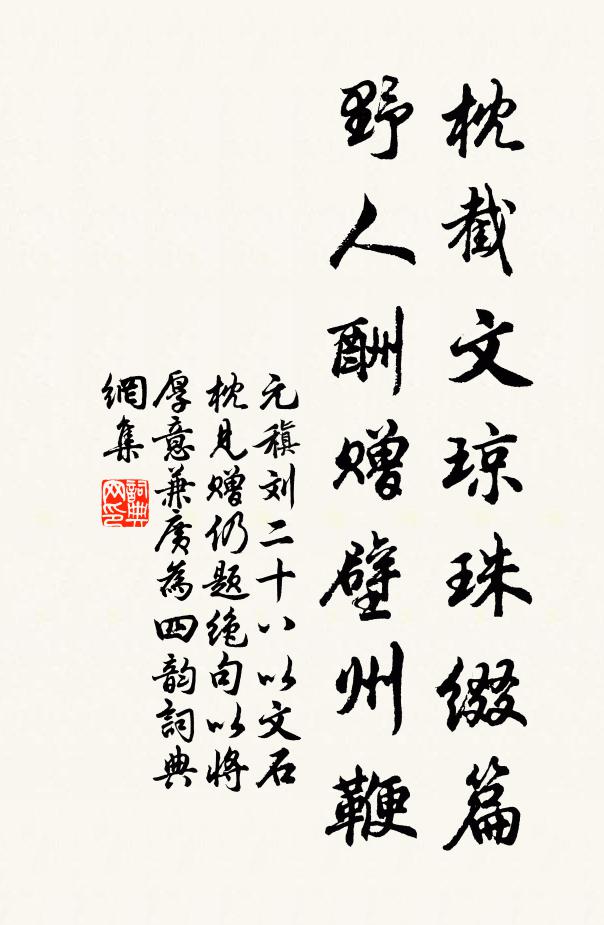 枕截文琼珠缀篇
野人酬赠壁州鞭
元稹刘二十八以文石
枕见赠仍题绝句以将
厚意兼廣為四韵詞典
網集
詞典
网印